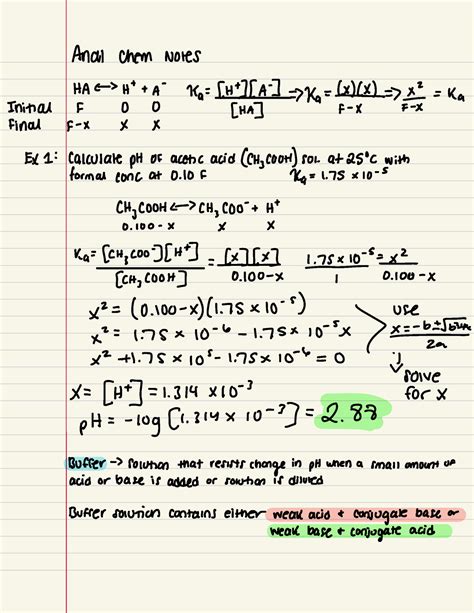 Anal Chem Notes
HA ⟷ H⁺ + A⁻   Ka = [H⁺][A⁻] / [HA] → Ka = (x)(x) / F-x ⇒ x² / F-x = Ka
Initial F 0 0
Final F-x x x
Ex 1: Calculate pH of acetic acid (CH₃COOH) sol. at 25°C with
formal conc at 0.10 F   Ka = 1.75 x 10⁻⁵
CH₃COOH ⟷ CH₃COO⁻ + H⁺
0.100-x x x
Ka = [CH₃COO⁻][H⁺] / [CH₃COOH] = [x][x] / 0.100-x   1.75 x 10⁻⁵ / 1 = x² / 0.100-x
x² = (0.100-x)(1.75 x 10⁻⁵)
x² = 1.75 x 10⁻⁶ - 1.75 x 10⁻⁵x
x² + 1.75 x 10⁵ - 1.75 x 10⁻⁶ = 0
use
x = -b ± √b²-4ac / 2a
solve
for x
x = [H⁺] = 1.314 x 10⁻³
pH = -log [1.314 x 10⁻³] = 2.88
Buffer → solution that resists change in pH when a small amount of
acid or base is added or solution is diluted
Buffer solution contains either weak acid + conjugate base or
weak base + conjugate acid